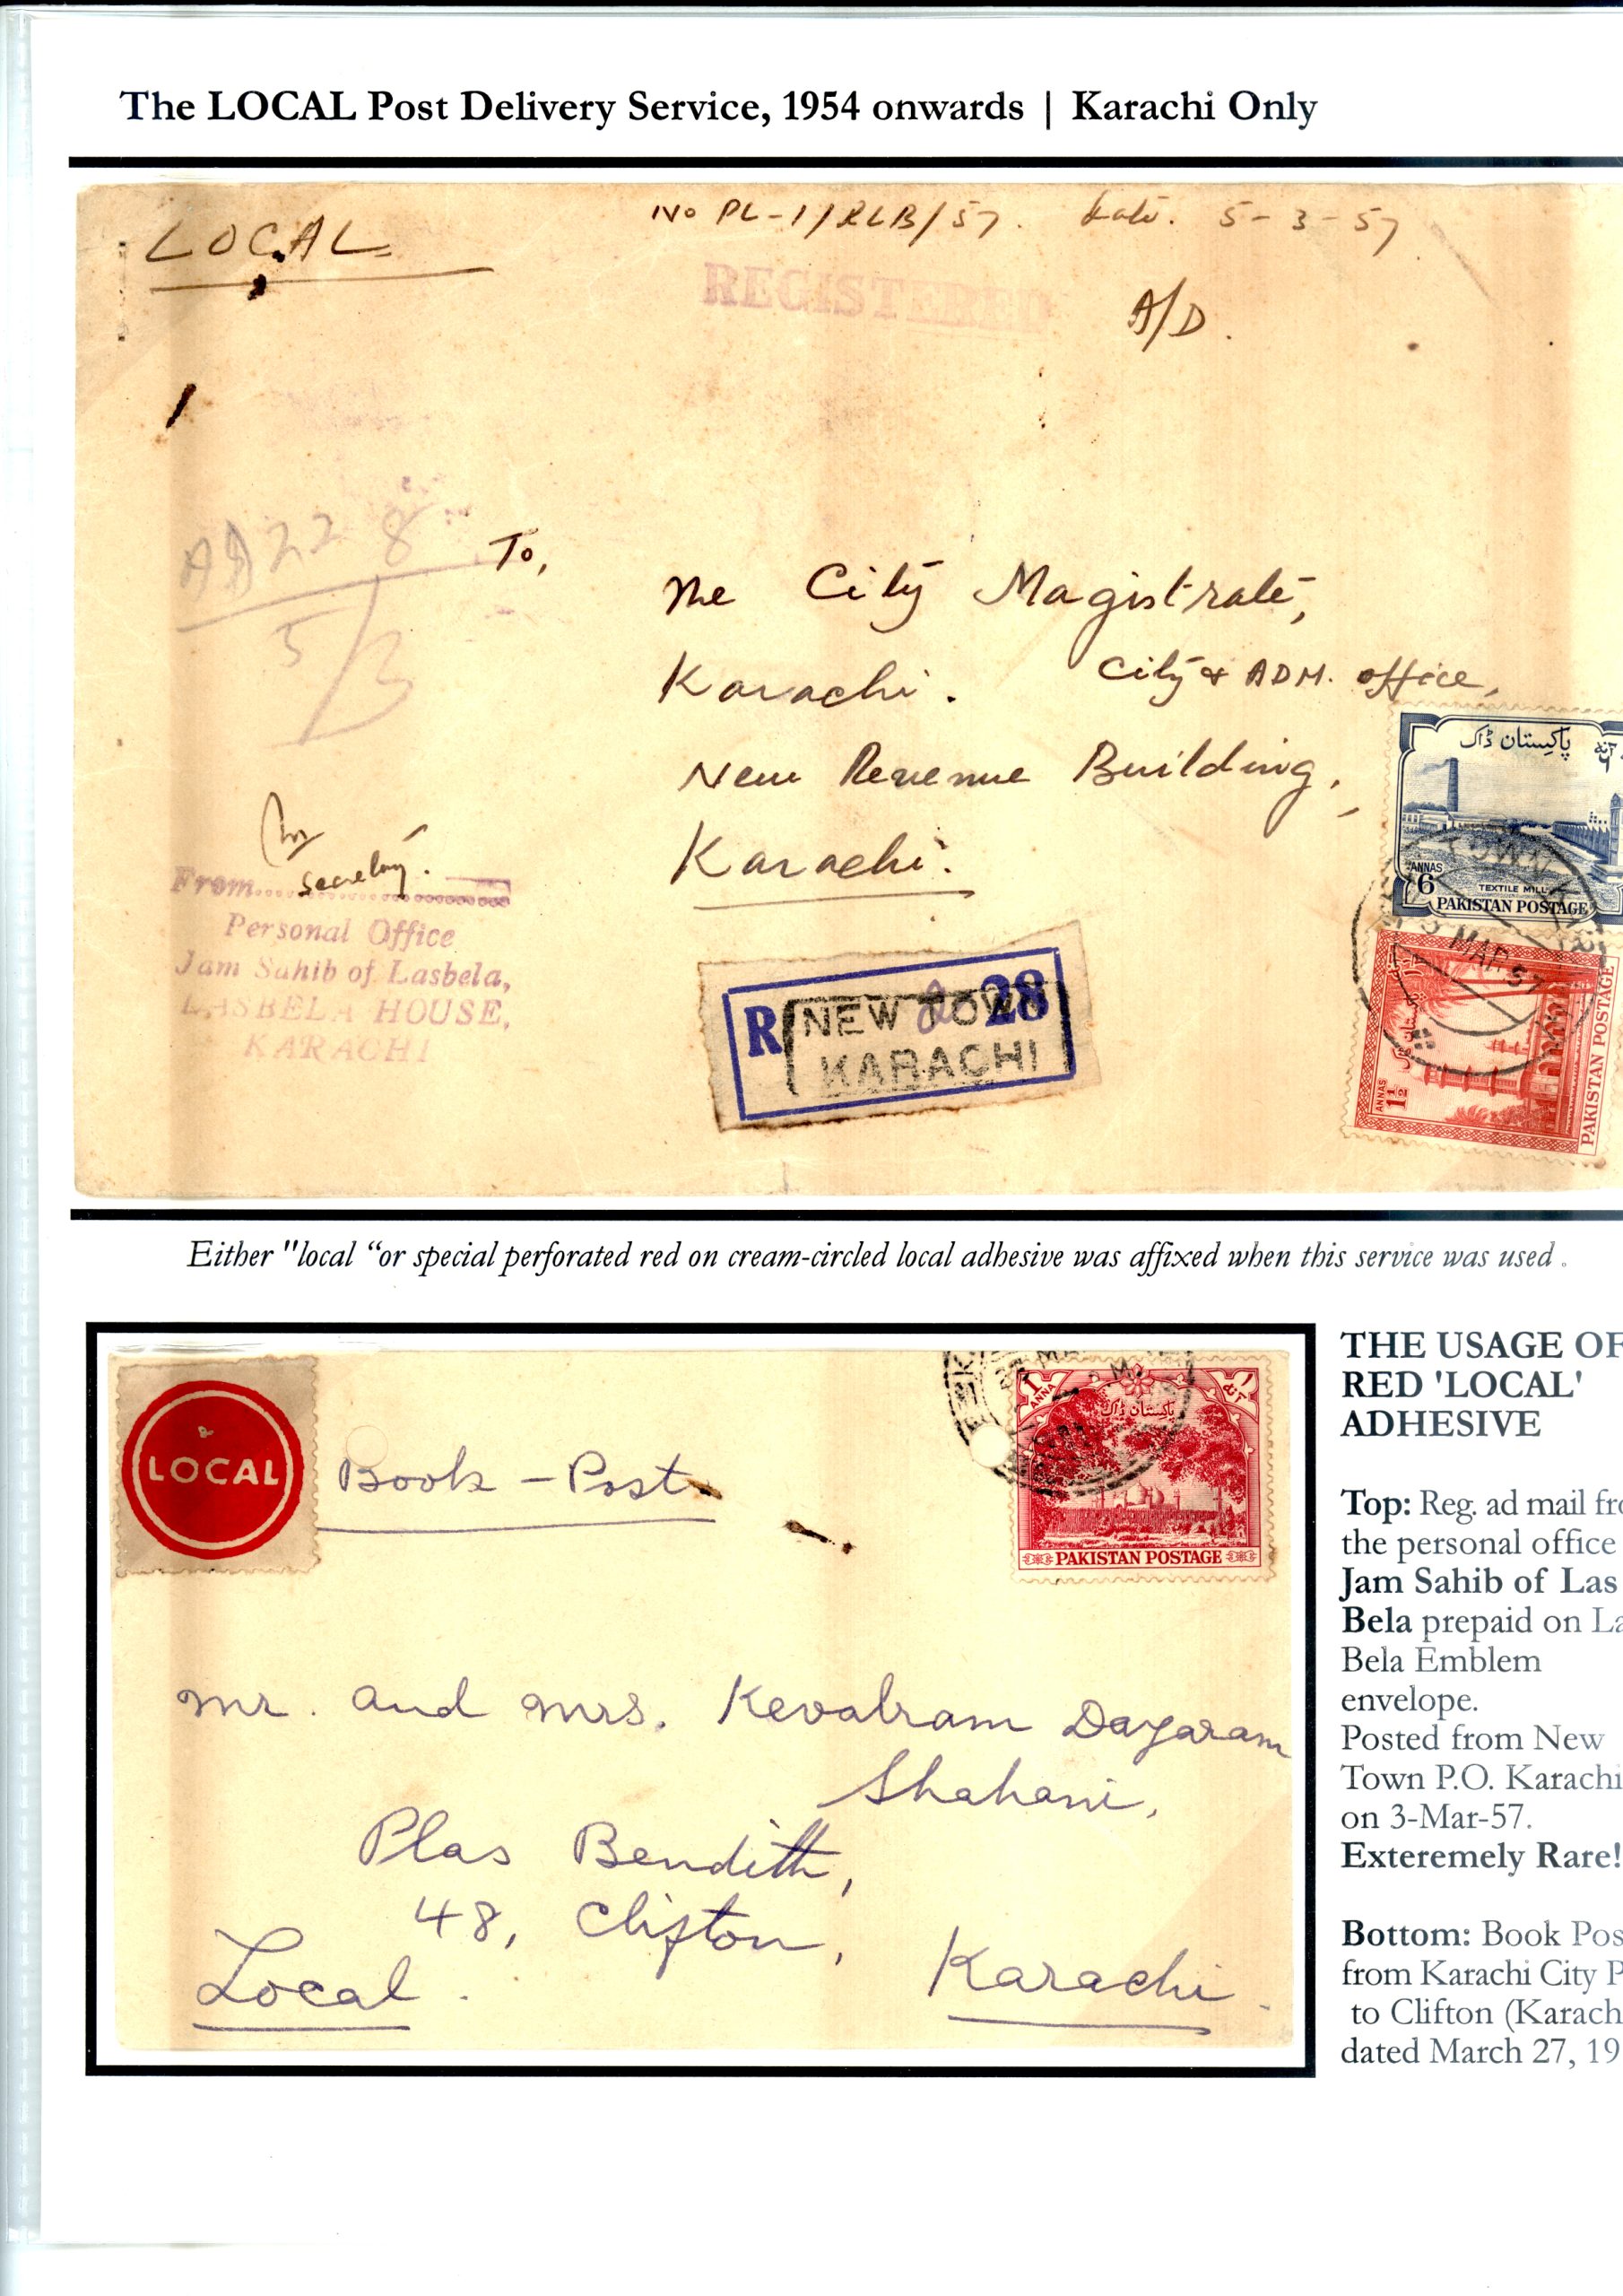 The LOCAL Post Delivery Service, 1954 onwards | Karachi Only
LOCAL
No PL-1/RLB/57. Date. 5-3-57
REGISTERED
A/D.
AD 22 8
5/3
To,
The City Magistrate,
Karachi. City & ADM. office,
New Revenue Building,
Karachi.
Secretary.
From
Personal Office
Jam Sahib of Lasbela,
LASBELA HOUSE,
KARACHI
R 28
NEW TOWN
KARACHI
پاکستان ڈاک
ANNAS
6
TEXTILE MILL
PAKISTAN POSTAGE
TOWN
MAR 57
ANNAS
1½
PAKISTAN POSTAGE
Either "local “or special perforated red on cream-circled local adhesive was affixed when this service was used .
LOCAL
Book - Post
1
ANNA
پاکستان ڈاک
PAKISTAN POSTAGE
Mr. and Mrs. Kevalram Dayaram
Shahani,
Plas Bendith,
48, Clifton,
Local. Karachi.
THE USAGE OF
RED 'LOCAL'
ADHESIVE
Top: Reg. ad mail fro
the personal office
Jam Sahib of Las
Bela prepaid on La
Bela Emblem
envelope.
Posted from New
Town P.O. Karachi
on 3-Mar-57.
Exteremely Rare!
Bottom: Book Pos
from Karachi City P
to Clifton (Karach
dated March 27, 19